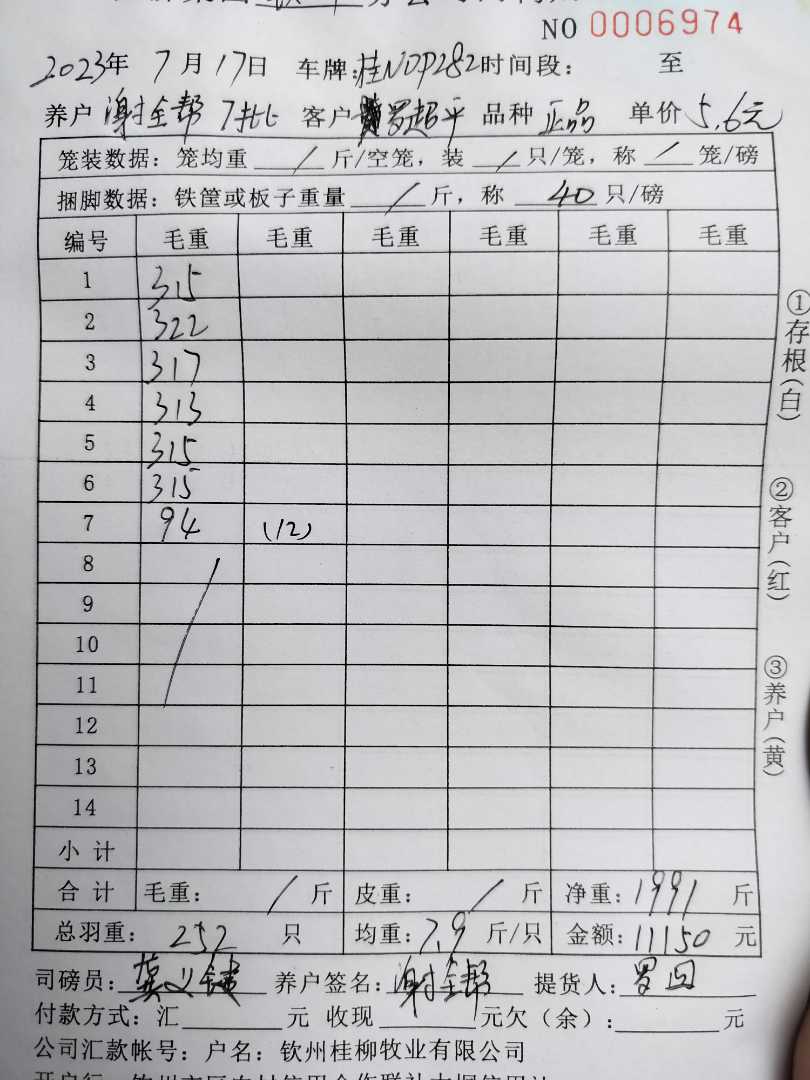 NO 0006974
2023年 7月17日 车牌:桂NDP282时间段: 至
养户 谢全帮 7批 客户 罗超平 品种 正品 单价 5.6元
笼装数据: 笼均重 / 斤/空笼, 装 / 只/笼, 称 / 笼/磅
捆脚数据: 铁筐或板子重量 / 斤, 称 40 只/磅
编号 毛重 毛重 毛重 毛重 毛重 毛重
1 315
2 322
3 317
4 313
5 315
6 315
7 94 (12)
8
9
10
11
12
13
14
小计
合计 毛重: / 斤 皮重: / 斤 净重: 1991 斤
总羽重: 252 只 均重: 7.9 斤/只 金额: 11150 元
司磅员: 龚义 养户签名: 谢全帮 提货人: 罗
付款方式: 汇 元 收现 元欠(余): 元
公司汇款帐号: 户名: 钦州桂柳牧业有限公司
①存根(白)
②客户(红)
③养户(黄)